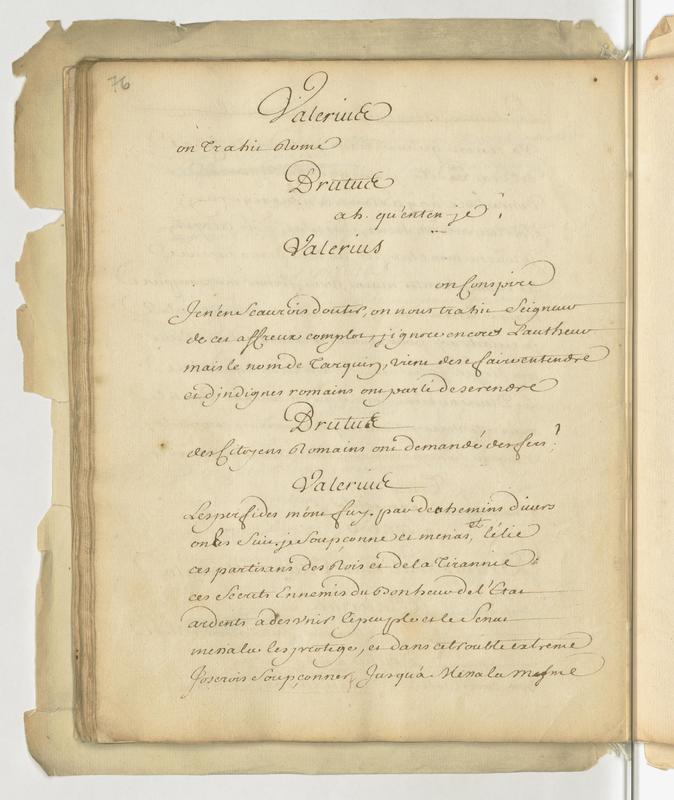 76
Valerius
on Trahit Rome
Brutus
ah. qu'enten-je?
Valerius
on Conspire
Je n'en scaurois douter, on nous trahit Seigneur
de cet affreux complot, j'ignore encore L'autheur
mais le nom de Tarquin, vient de se faire entendre
et d'jndignes romains ont parlé de se rendre
Brutus
des Citoyens Romains ont demandé des fers?
Valerius
Les perfides m'ont fuy. par de chemins divers
on les suit. je soupçonne et menas, et lélie
ces partisans des Rois et de la Tirannie
ces Secrets Ennemis du bonheur de l'Etat
ardents a desunir le peuple et le Senat
messala les protege, et dans ce trouble extreme
J'oserois Soupçonner Jusqu'á Messala mesme